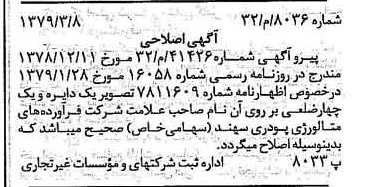 شماره ۸۰۳۶/م/۳۲ ۱۳۷۹/۳/۸
آگهی اصلاحی
پیرو آگهی شماره ۴۱۴۲۶/م/۳۲ مورخ ۱۳۷۸/۱۲/۱۱
مندرج در روزنامه رسمی شماره ۱۶۰۵۸ مورخ ۱۳۷۹/۱/۲۸
درخصوص اظهارنامه شماره ۷۸۱۱۶۰۹ تصویر یک دایره و یک
چهارضلعی بر روی آن نام صاحب علامت شرکت فرآورده‌های
متالورژی پودری سهند (سهامی‌خاص) صحیح میباشد که
بدینوسیله اصلاح میگردد.
پ ۸۰۳۳ اداره ثبت شرکتهای و مؤسسات غیرتجاری